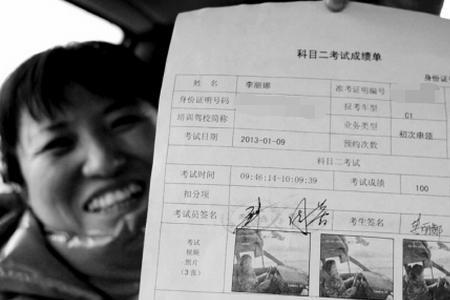 科目二考试成绩单
姓 名 李丽娜 准考证明编号 身份证
身份证明号码 报考车型 C1
培训驾校简称 业务类型 初次申领
考试日期 2013-01-09 预约次数
科目二考试
考试时间 09:46:14-10:09:39 考试成绩 100
扣分项
考试员签名 考生签名 李丽娜
考试
视频
照片
(3张)